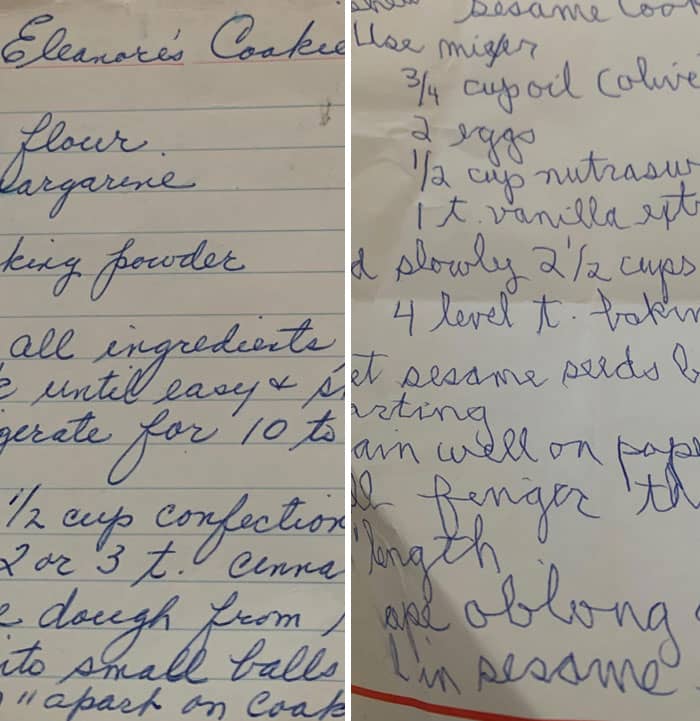 Eleanore's Cookie
flour
argarine
king powder
all ingredients
until easy &
gerate for 10 to
1/2 cup confection
2 or 3 t. cinna
e dough from
ito small balls
" apart on cook
sesame Cook
Use mixer
3/4 cup oil (olive
2 eggs
1/2 cup nutrasw
1 t. vanilla extr
d slowly 2 1/2 cups
4 level t. bakin
et sesame seeds b
arting
ain well on pape
ll finger th
length
ape oblong
l in sesame